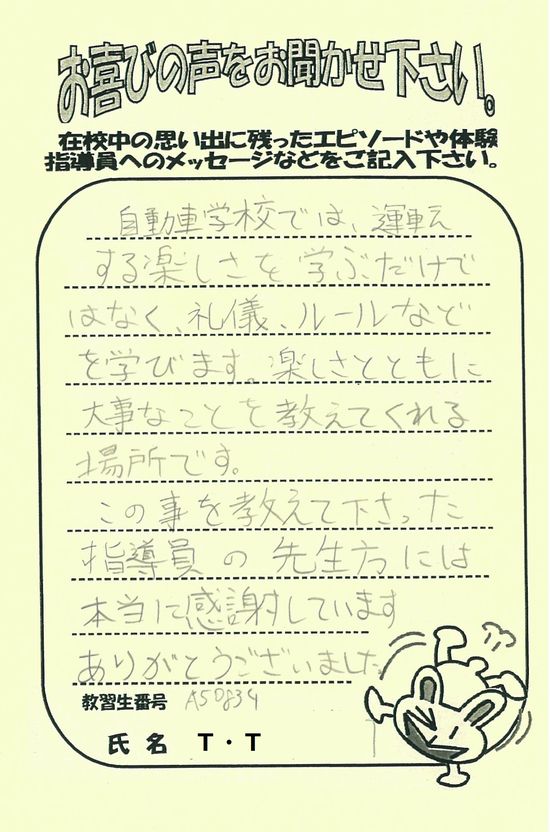 お喜びの声をお聞かせ下さい。
在校中の思い出に残ったエピソードや体験
指導員へのメッセージなどをご記入下さい。
自動車学校では、運転
する楽しさを学ぶだけで
はなく、礼儀、ルールなど
を学びます。楽しさとともに
大事なことを教えてくれる
場所です。
この事を教えて下さった
指導員の先生方には
本当に感謝しています
ありがとうございました
教習生番号 A50834
氏名 T・T